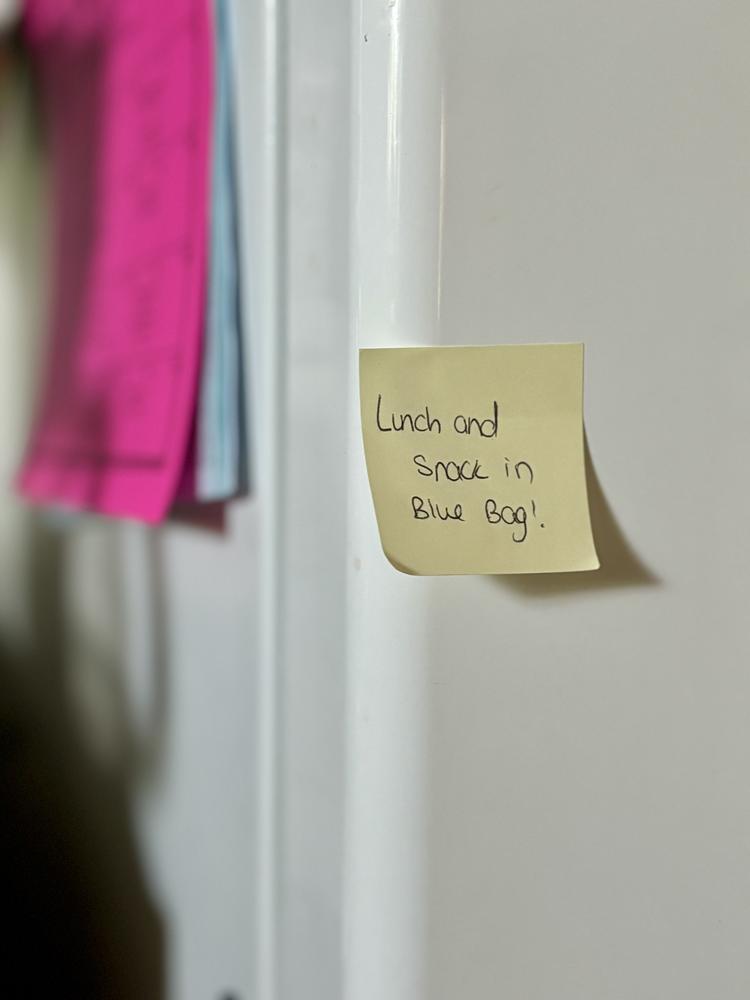 Lunch and
Snack in
Blue Bag!